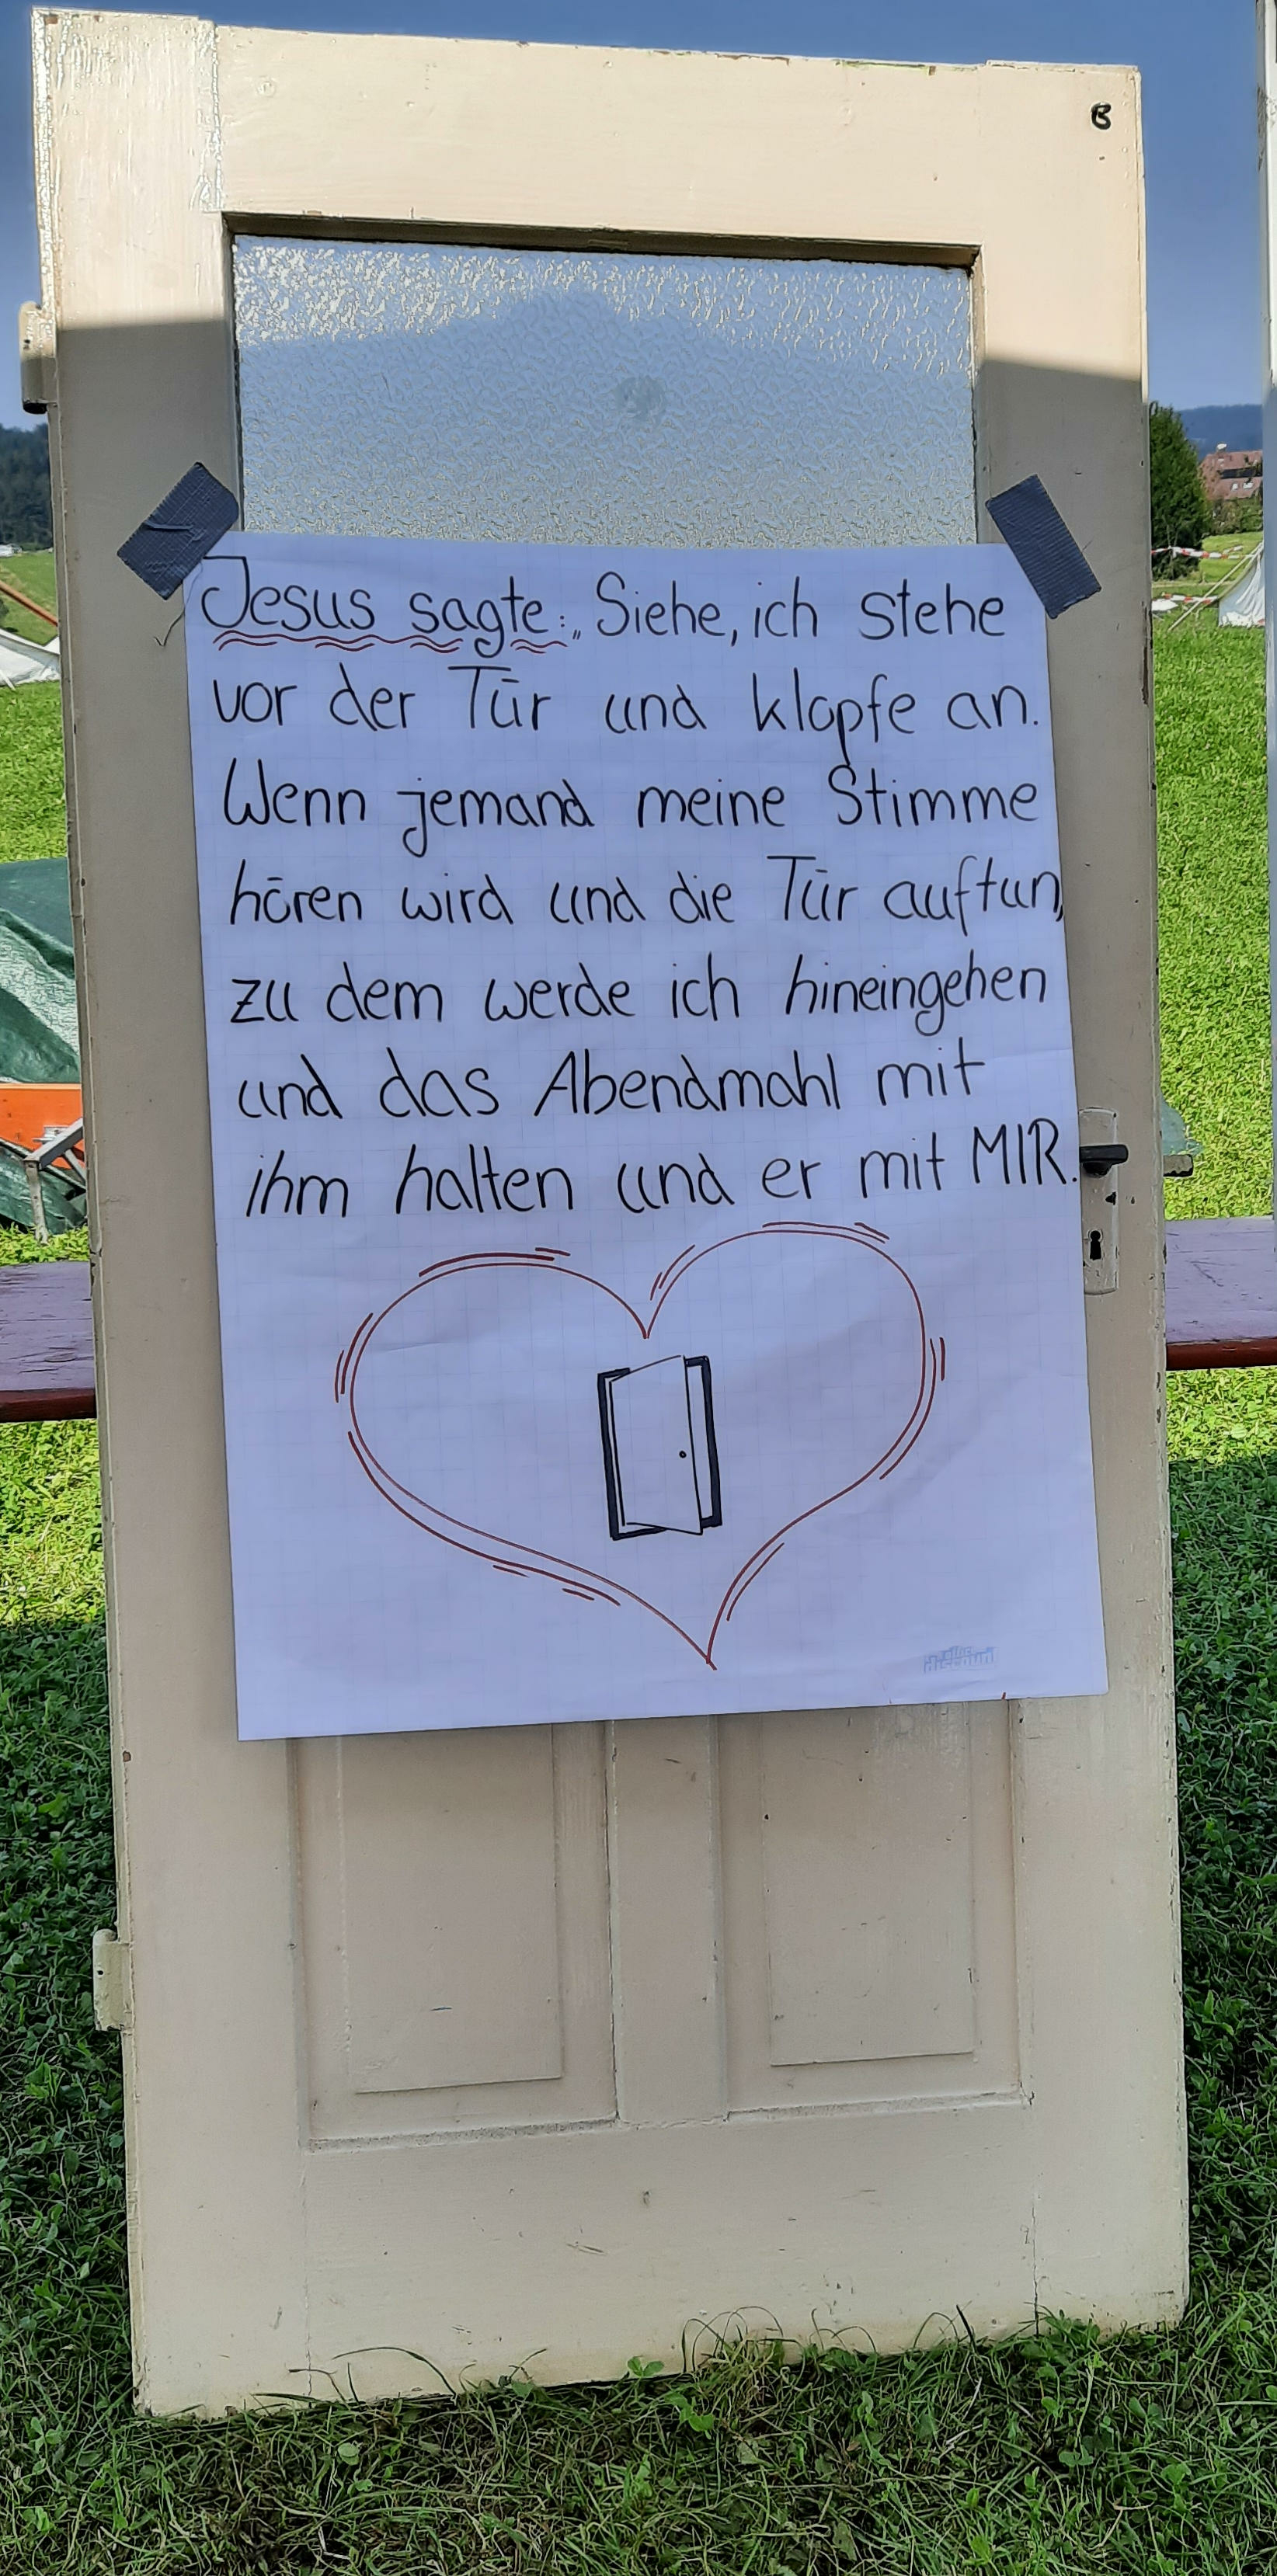 B
Jesus sagte: „Siehe, ich stehe
vor der Tür und klopfe an.
Wenn jemand meine Stimme
hören wird und die Tür auftun,
zu dem werde ich hineingehen
und das Abendmahl mit
ihm halten und er mit MIR.